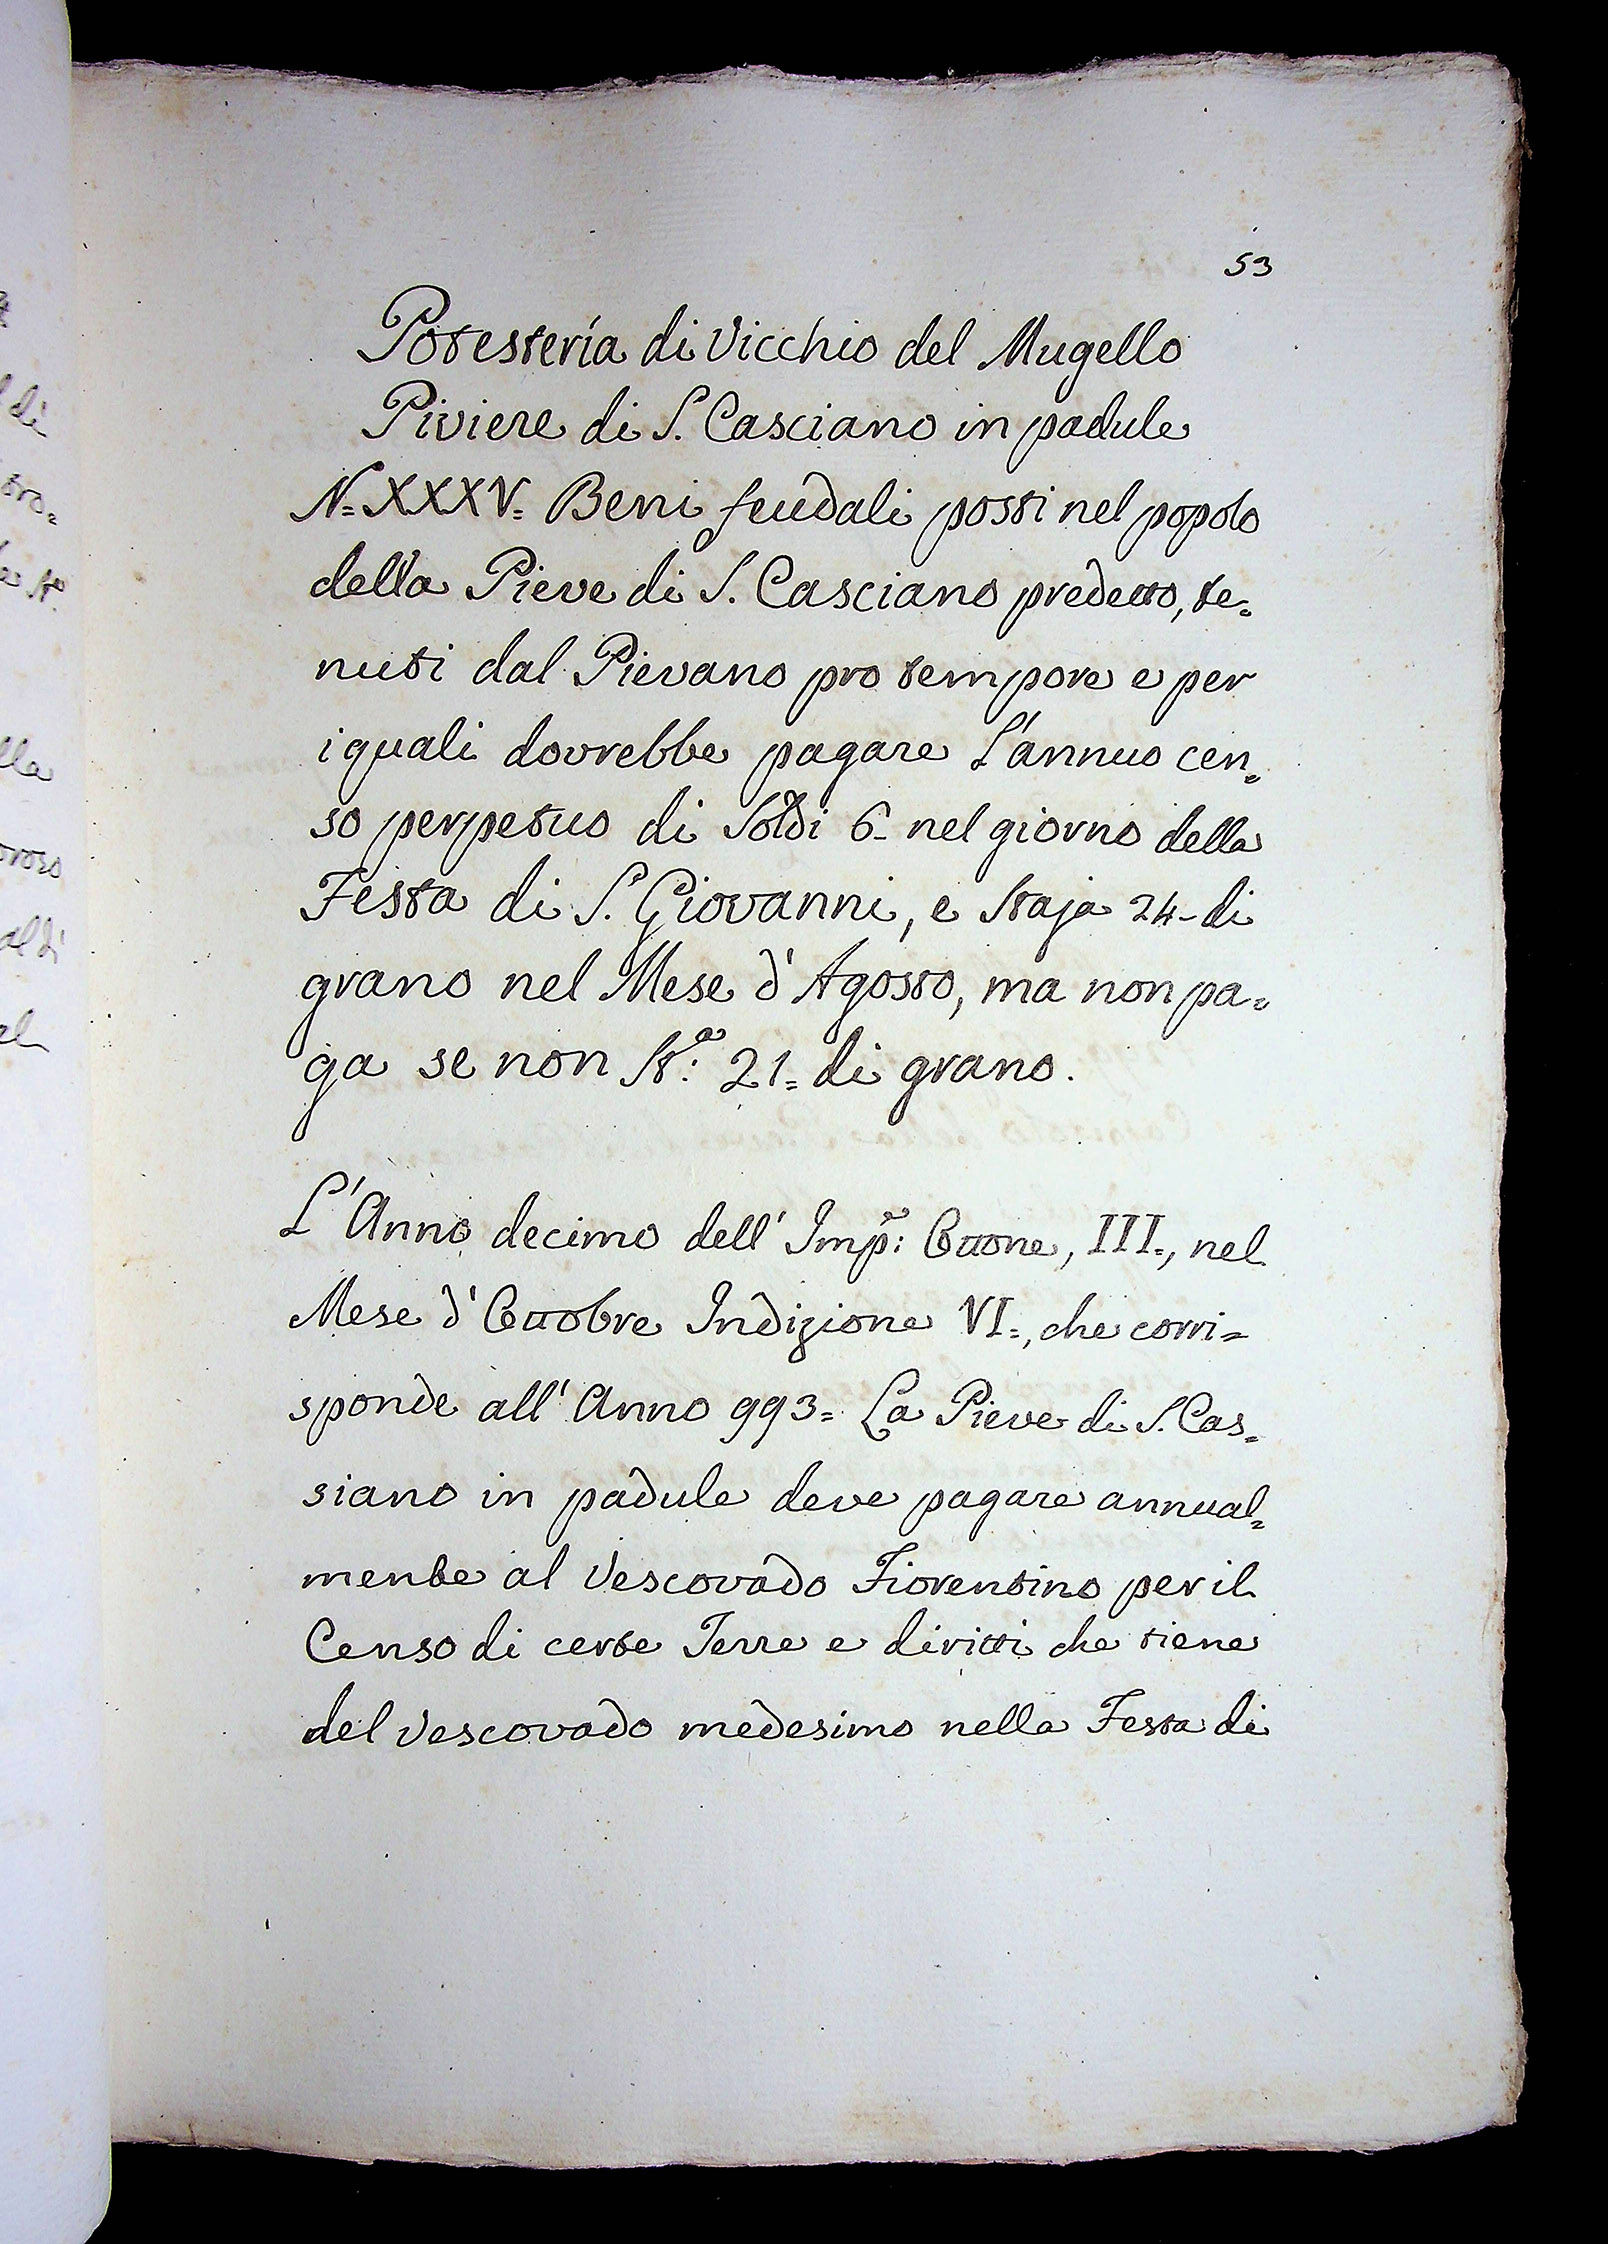 53
Potesteria di Vicchio del Mugello
Piviere di S. Casciano in padule
N.= XXXV.= Beni feudali posti nel popolo
della Pieve di S. Casciano predetto, te=
nuti dal Pievano pro tempore e per
i quali dovrebbe pagare l'annuo cen=
so perpetuo di Soldi 6- nel giorno della
Festa di S. Giovanni, e Staja 24- di
grano nel Mese d'Agosto, ma non pa=
ga se non St.ª: 21= di grano.
L'Anno decimo dell' Imp.e: Ottone, III=, nel
Mese d'Ottobre Indizione VI=, che corri=
sponde all' Anno 993= La Pieve di S. Cas=
siano in padule deve pagare annual=
mente al Vescovado Fiorentino per il
Censo di certe Terre e diritti che tiene
del Vescovado medesimo nella Festa di